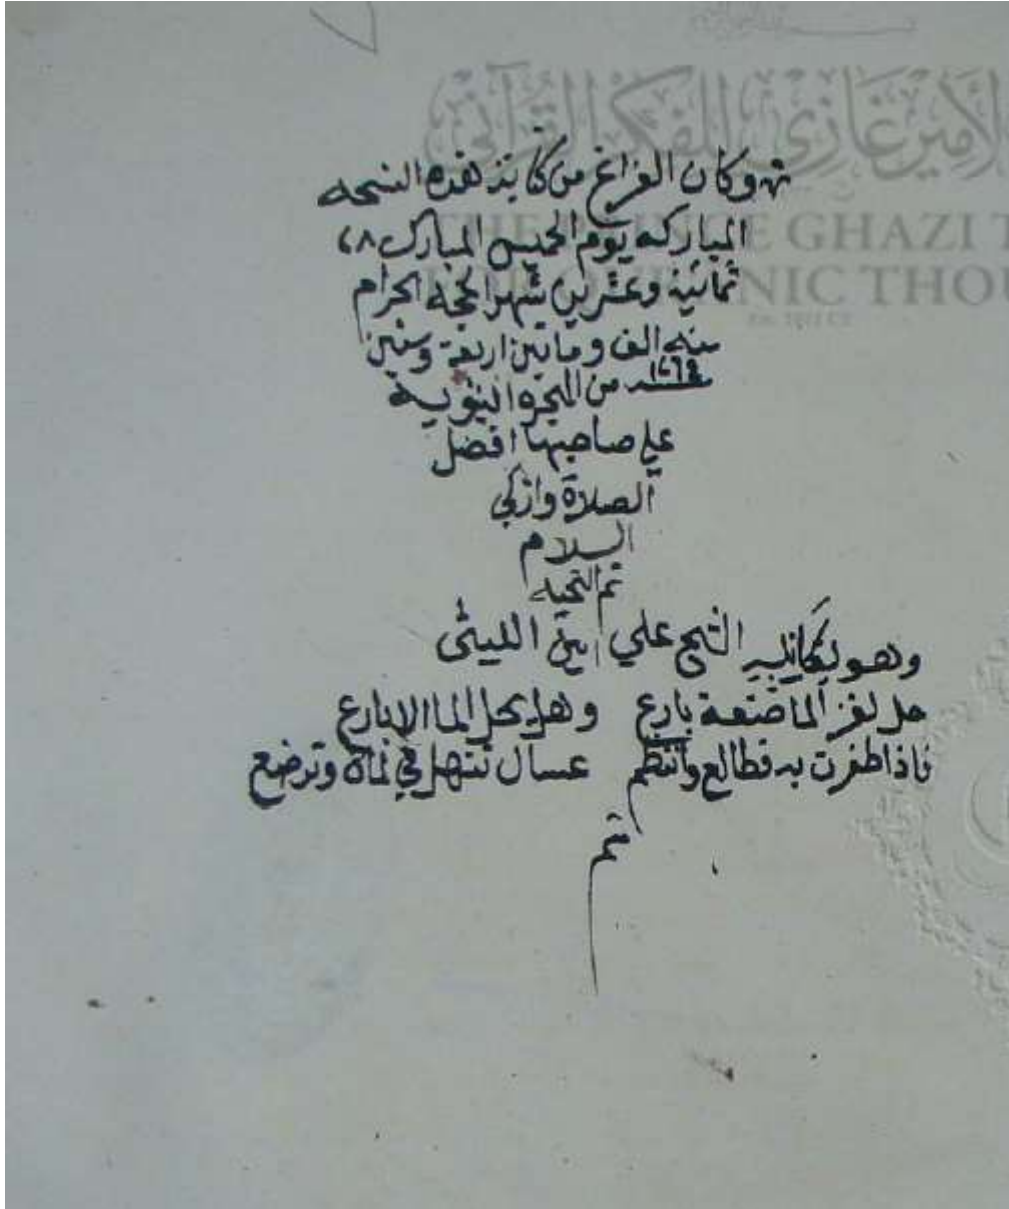 الأمير غازي للفكر القرآني
THE PRINCE GHAZI T
FOR QURANIC THOU
تم وكان الفراغ من كتابة هذه النسخه
المباركه يوم الخميس المبارك ٢٨
ثمانية وعشرين شهر الحجة الحرام
سنه الف وماتين اربعة وستين
١٢٦٤ من الهجرة النبوية
علي صاحبها افضل
الصلاة وازكي
السلام
تم
وهو لكاتبه الشيخ علي الليثى
حل لغز الما صنعة بارع وهل يحل الما الا بارع
فاذا ظفرت به فطالع وانتظم عسال تنهل في وترضع
تم